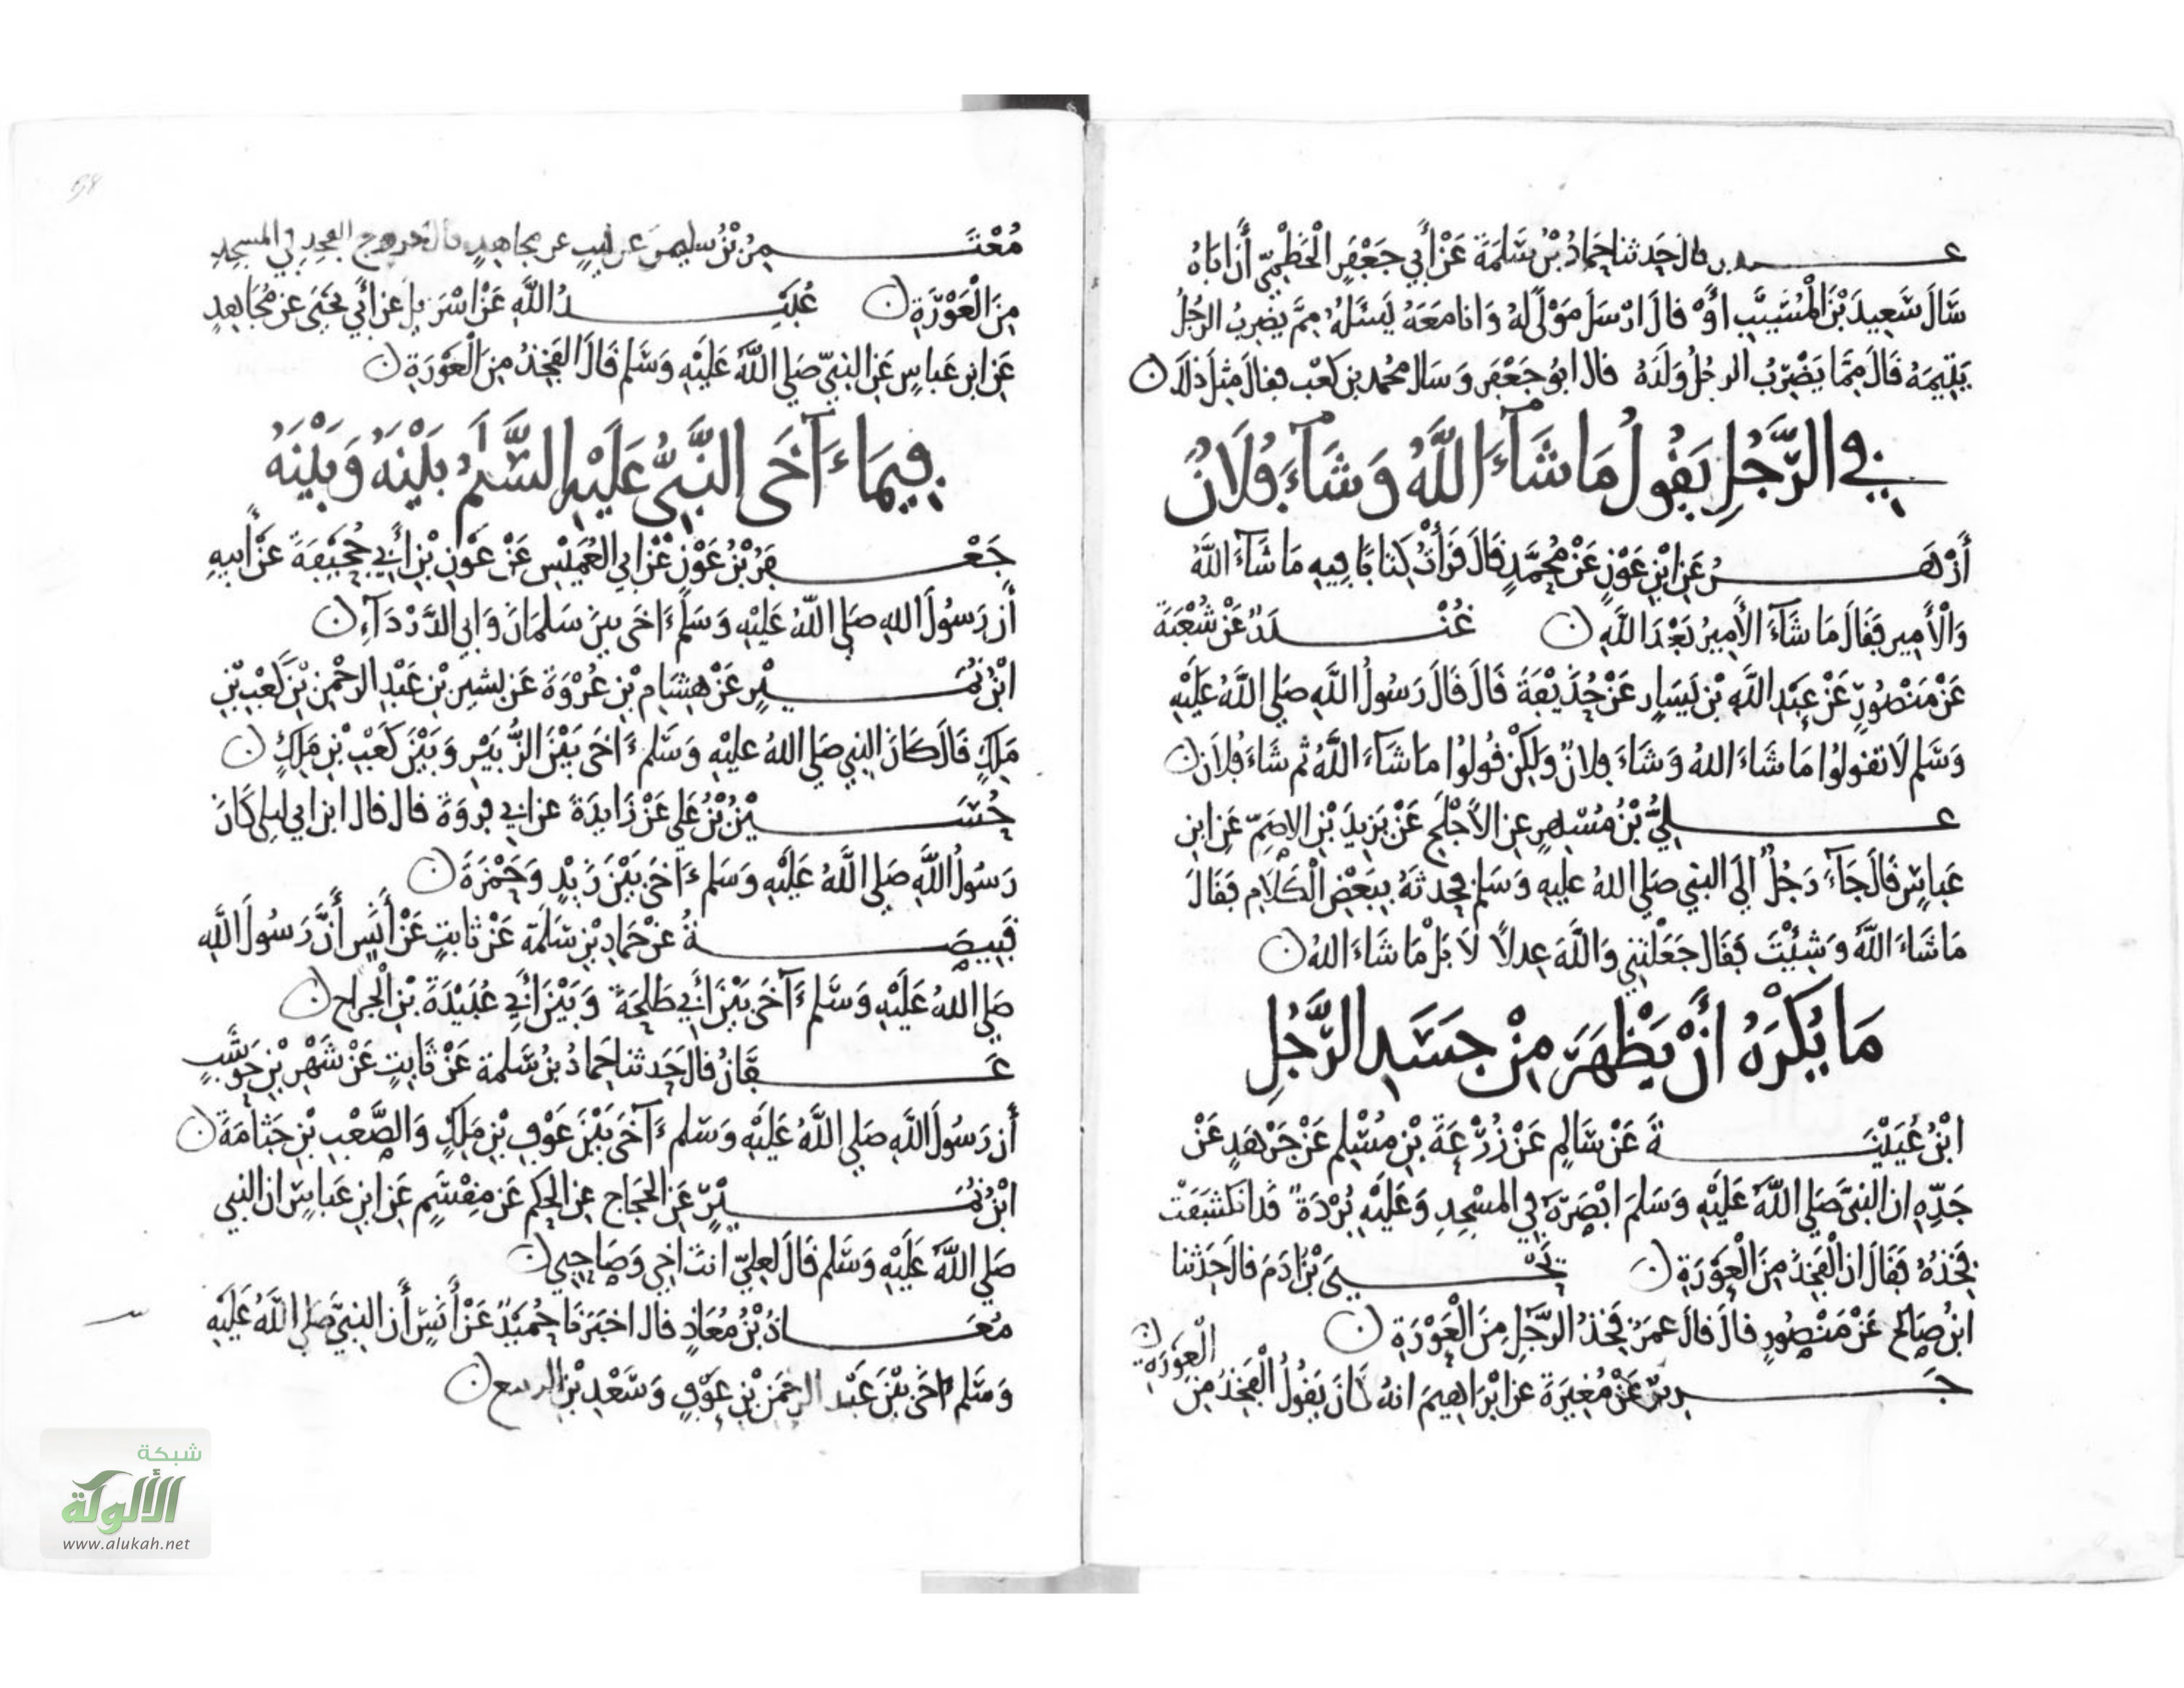 عفان قال حدثنا حماد بْنُ سَلَمَةَ عَنْ أَبِي جَعْفَرٍ الْخَطْمِيِّ أَنَّ أَبَاهُ
سَأَلَ سَعِيدَ بْنَ الْمُسَيَّبِ أَوْ قال ارْسَلَ مَوْلًى لَهُ وَانا مَعَهُ يَسْئَلُهُ مِمَّ يَضْرِبُ الرجُلُ
يَتِيمَهُ قَالَ مِمَّا يَضْرِبُ الرجُلُ وَلَدَهُ قال ابُو جَعْفَر وَسَال محمد بن كَعْب فقال مِثْلَ ذلكَ
في الرَّجُلِ يَقُولُ مَا شَآءَ اللَّهُ وَشَآءَ فُلَانٌ
أَزْهَرُ عَنِ ابْنِ عَوْنٍ عَنْ مُحَمَّدٍ قَالَ قَرَأْتُ كِتابًا فِيهِ مَا شَآءَ اللَّهُ
وَالْأَمِير فَقَالَ مَا شَآءَ الْأَمِيرُ بَعْدَ اللَّهِ غُنْدَرٌ عَنْ شُعْبَةَ
عَنْ مَنْصُورٍ عَنْ عَبْدِ اللَّهِ بْنِ يَسَارٍ عَنْ حُذَيْفَةَ قَالَ قَالَ رَسُولُ اللَّهِ صَلى اللَّهُ عَلَيْهِ
وَسَلم لَا تقولُوا مَا شَاءَ اللهُ وَشَاءَ فلانٌ وَلَكِنْ قُولُوا مَا شَآءَ اللَّهُ ثم شَاءَ فُلَان
عَلِيُّ بْنُ مُسْهِرٍ عن الأَجْلَحِ عَنْ يَزِيدَ بْنِ الاصَمِّ عَنِ ابن
عَباسٍ قَالَ جَآءَ رَجُلٌ الى النبي صَلى اللهُ عليه وَسَلم فحدثهُ بِبَعْضِ الْكَلَامِ فَقَالَ
مَا شَاءَ اللَّهُ وَشِئْتَ فَقَال جَعَلْتَنِي وَاللَّهَ عدلًا لَا بَلْ مَا شَاءَ اللهُ
مَا يُكْرَهُ أَنْ يَظْهَرَ مِنْ جَسَدِ الرَّجُلِ
ابْنُ عُيَيْنَةَ عَنْ سَالِمٍ عَنْ زُرْعَةَ بْنِ مُسْلِم عَنْ جَرْهَدٍ عَنْ
جَدِّهِ ان النبىَّ صَلى اللَّهُ عَلَيْهِ وَسَلمَ ابْصَرَهُ فِي المسْجِدِ وَعَلَيْهِ بُرْدَةٌ قَدِ انكَشَفَتْ
فَخذهُ فَقَالَ ان الْفَخِذَ مِنَ الْعَوْرَةِ يَحْيىَ بْنُ ادَمَ قالَ حَدثنا
ابنُ صَالح عَنْ مَنْصُورٍ قالَ قالَ عمَرُ فَخِذُ الرَّجُلِ مِنَ الْعَوْرَةِ
جَرِيرٌ عَنْ مُغِيرَةَ عن ابْرَاهِيمَ انهُ كَانَ يَقُولُ الْفَخِذُ مِنَ
الْعَوْرَةِ
مُعْتَمِرُ بْنُ سليمنَ عَن ليثٍ عن مجاهِدٍ قال خروج الفخِذِ في المسجِدِ
مِنَ الْعَوْرَةِ عُبَيْدُ اللَّهِ عَنْ اسْرَئِيلَ عن أَبي يَحْيَى عن مُجَاهِدٍ
عَنِ ابن عَباسٍ عَن النبيِّ صَلى اللَّهُ عَلَيْهِ وَسَلم قَالَ الفَخِذُ مِنَ الْعَوْرَةِ
فِيمَا ءَآخَى النَّبِيُّ عَلَيْهِ السَّلَمُ بَيْنَهُ وَبَيْنَهُ
جَعْفَرُ بْنُ عَوْنٍ عَنْ ابي العُمَيْسِ عَنْ عَوْنِ بْنِ أَبي جُحَيْفَةَ عَنْ أَبيهِ
أَن رَسُولَ اللهِ صَلى اللَّهُ عَلَيْهِ وَسَلم ءَاخَى بينَ سَلمَانَ وَابي الدَّرْدَآءِ
ابْنُ نُمَيْرٍ عَنْ هِشَامِ بْنِ عُرْوَةَ عَن بشيرِ بْنِ عَبْدِ الرحْمنِ بْنِ كَعْبِ بْنِ
مَلِكٍ قَالَ كَانَ النبي صَلى اللهُ عليهِ وَسَلم ءَاخَى بَيْنَ الزُّبَيْرِ وَبَيْنَ كَعْبِ بْنِ مَلِكٍ
حُسَيْنُ بْنُ عَلي عَنْ زَايدَةَ عن ابي فروَةَ قال قال ابن ابي ليلى كَانَ
رَسُولُ اللَّهِ صَلى اللَّهُ عَلَيْهِ وَسَلم ءَاخَى بَيْنَ زَيْدٍ وَحَمْزَةَ
قَبِيصَةُ عن حَمادِ بْنِ سَلَمَة عَنْ ثابتٍ عَنْ أَنَسٍ أَنَّ رَسُولَ اللَّهِ
صَلى اللهُ عَلَيْهِ وَسَلم ءَآخَى بَيْنَ أَبي طَلحَةَ وَبَيْنَ أَبِي عُبَيْدَةَ بْنِ الجراح
عَفَّانُ قالَ حَدثنا حَمادُ بْنُ سَلمة عَنْ ثَابِتٍ عَنْ شَهْرِ بْنِ حَوْشَبٍ
أَن رَسُولَ اللَّهِ صَلى اللَّهُ عَلَيْهِ وَسَلم ءَآخَى بَيْنَ عَوْفِ بْنِ مَلِكٍ وَالصَّعْبِ بْنِ جَثامَةَ
ابْنُ نُمَيْرٍ عَنِ الحَجَاجِ عن الحكم عَن مِقْسَمٍ عَنِ ابنِ عَباسٍ ان النبي
صَلى اللَّهُ عَلَيْهِ وَسَلم قَالَ لعلِيٍّ انتَ اخِي وَصَاحِبِي
مُعَاذُ بْنُ مُعَاذٍ قال اخبَرَنَا حُمَيْدٌ عَنْ أَنَسٍ أَن النبيَّ صَلى اللَّهُ عَلَيْهِ
وَسَلم ءاخَى بَيْنَ عَبْدِ الرحْمَنِ بْنِ عَوْفٍ وَسَعْدِ بْنِ الربيع
شبكة
الألوكة
www.alukah.net